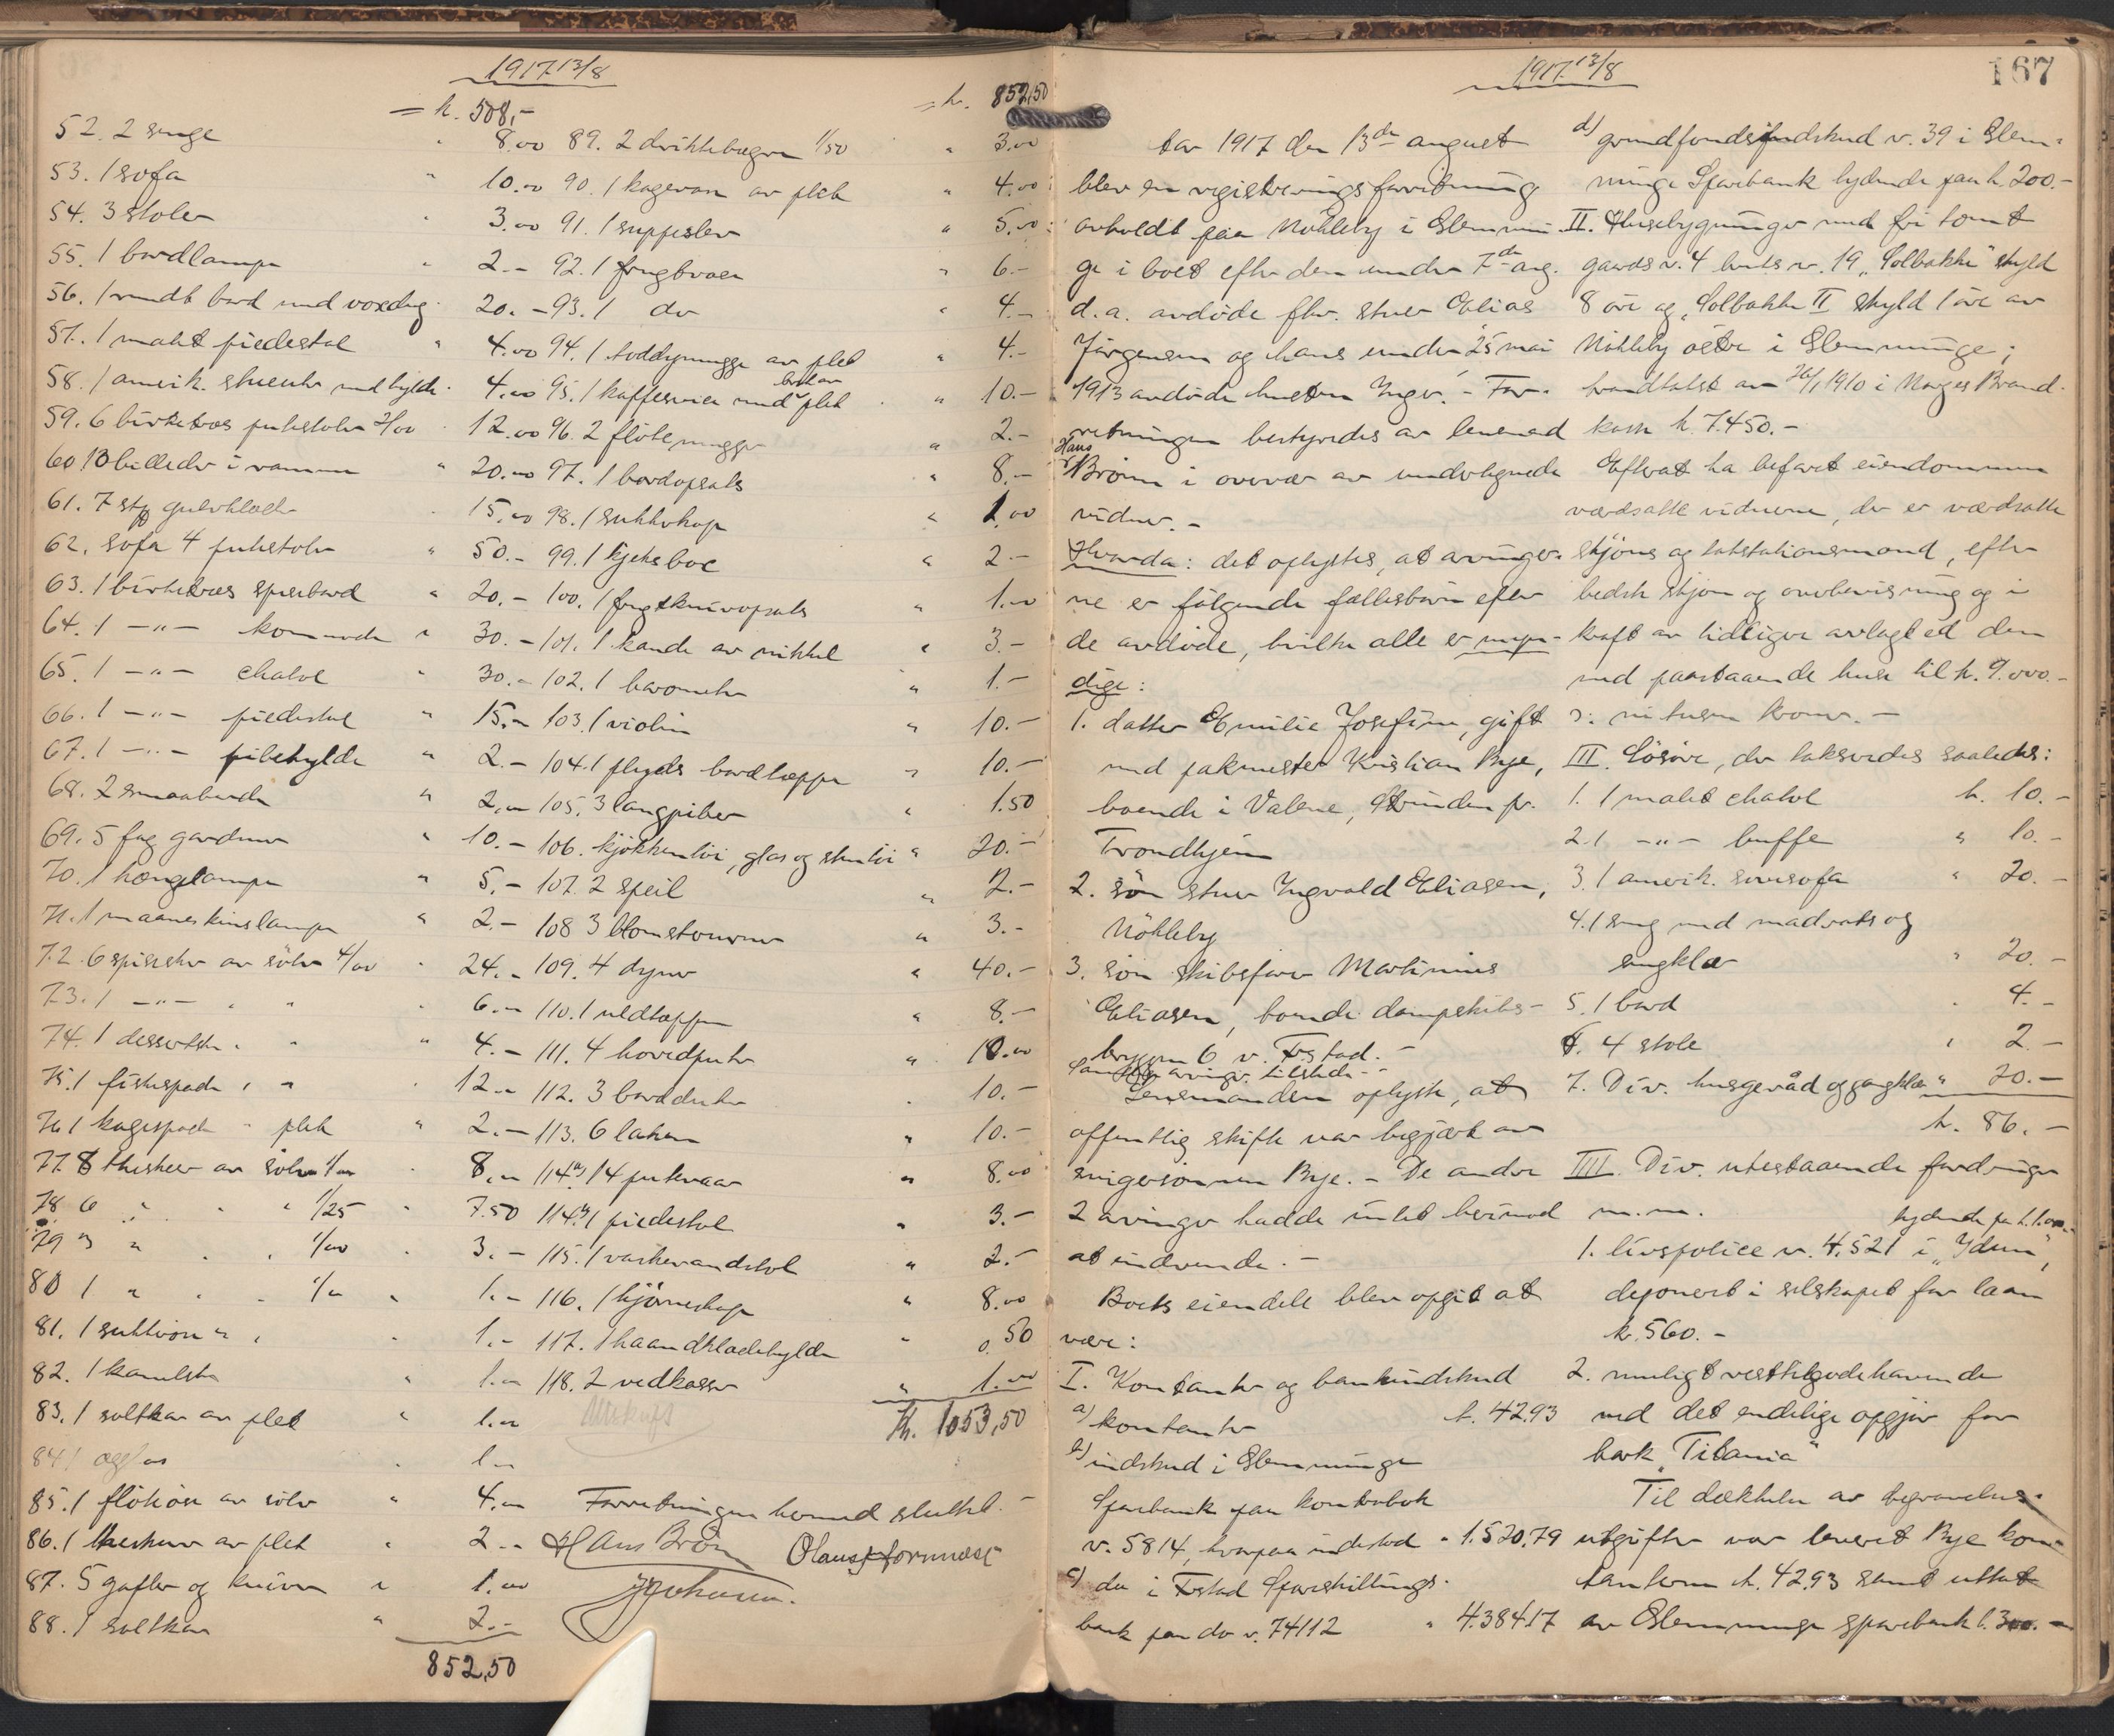 1917 13/8
= k. 508,-
52. 2 senge " 8.00
53. 1 sofa " 10.00
54. 3 stoler " 3.00
55. 1 bordlampe " 2.-
56. 1 rundt bord med voxdug " 20.-
57. 1 malet piedestal " 4.00
58. 1 amerik. stueuhr med hylde " 4.00
59. 6 birketræs pindestoler 2/00 " 12.00
60. 13 billeder i ramme " 20.00
61. 7 stk gulvklæder " 15.00
62. sofa 4 puhstoler " 50.-
63. 1 birketræs spisebord " 20.-
64. 1 -"- kommode " 30.-
65. 1 -"- chatol " 30.-
66. 1 -"- piedestal " 15.-
67. 1 -"- pibehylde " 2.-
68. 2 smaaborde " 2.00
69. 5 fag gardiner " 10.-
70. 1 hængelampe " 5.-
71. 1 maaneskinslampe " 2.-
72. 6 spiseskr av sølv 4/00 " 24.-
73. 1 -"- " " " 6.-
74. 1 dessertskr " " " 4.-
75. 1 fiskespade " " 12.-
76. 1 kagespade " plet " 2.-
77. 8 theskeer av sølv 1/00 " 8.00
78 6 " " " 1/25 " 7.50
79 3 " " " 1/00 " 3.-
80 1 " " " 1/00 " 1.-
81. 1 sukkerske " " " 1.-
82. 1 kanelskr " 1.-
83. 1 saltkar av plet " 1.-
84. 1 ægglas " 1.-
85. 1 flöteöse av sölv " 4.00
86. 1 theskur av plet " 2.-
87. 5 gafler og kniver " 1.00
88. 1 saltkar " 2.-
852,50
= k. 852,50
89. 2 drikkebægere 1/50 " 3.00
90. 1 kagevase av plet " 4.00
91. 1 suppeslev " 5.00
92. 1 frugtvase " 6.-
93. 1 do " 4.-
94. 1 toddymugge av plet " 4.-
95. 1 kaffeservice med brikker plet " 10.-
96. 2 flötemugger " 2.-
97. 1 bordopsats " 8.-
98. 1 sukkerkop " 1.00
99. 1 kjeksboxe " 2.-
100. 1 frugtknivopsats " 1.00
101. 1 kande av nikkel " 3.-
102. 1 barometer " 1.-
103. 1 violin " 10.-
104. 1 plyds bordtæppe " 10.-
105. 3 langpiber " 1.50
106. kjökkentöi, glas og stentöi " 20.-
107. 2 speil " 2.-
108 3 blomstervaser " 3.-
109. 4 dyner " 40.-
110. 1 uldtæppe " 8.-
111. 4 hovedputer " 10.00
112. 3 bordduker " 10.-
113. 6 laken " 10.-
114a) 14 putevaar " 8.00
114b) 1 piedestal " 3.-
115. 1 vaskevandstol " 2.-
116. 1 hjörneskap " 8.00
117. 1 haandklædehylde " 0.50
118. 2 vedkasser " 1.00
Kr. 1053,50
Forretningen hermed sluttet.-
Hans Brönn Olaus Fornæss
J Johansen.
1917 13/8
167
Aar 1917 den 13de august
blev en registreringsforretning
avholdt paa Nökleby i Glemmin-
ge i boet efter den under 7de aug.
d.a. avdöde fhv. stuer Elias
Jörgensen og hans under 25 mai
1913 avdöde hustru Inger. - For-
retningen bestyredes av lensmand
Hans Brönn i overvær av undertegnede
vidner. -
Hvorda: det oplystes, at arvinger-
ne er fölgende fællesbarn efter
de avdöde, hvilke alle er myn-
dige:
1. datter Emilie Josefine, gift
med pakmester Kristian Bye,
boende i Valene, Strinden pr.
Trondhjem
2. sön stuer Ingvald Eliasen,
Nökleby
3. sön skibsförer Martinius
Eliasen, boende dampskibs-
bryggen 6 v. Fr.stad. -
Samtlige arvinger tilstede. -
Lensmanden oplyste, at
offentlig skifte var begjært av
svigersönnen Bye. - De andre
2 arvinger hadde intet herimod
at indvende. -
Boets eiendele blev opgit at
være:
I. Kontanter og bankindskud
a) kontanter k. 42.93
b) indskud i Glemminge
Sparebank paa kontrabok
nr. 5814, hvorpaa indestod " 1.520.79
c) do i Fr.stad Spareskillings-
bank paa do nr. 74112 " 4.384.17
d) grundfondsindskud nr. 39 i Glem-
minge Sparebank lydende paa k. 200.-
II. Husebygninger med fri tomt
gaards nr. 4 bruks nr. 19 „Solbakke" skyld
8 öre og „Solbakke II skyld 1 öre av
Nökleby östre i Glemminge;
brandtakst av 26/1 1910 i Norges Brand-
kasse k. 7.450.-
Efterat ha befaret eiendommen
værdsatte vidnerne, der er værdsatte
skjöns og takstationsmænd, efter
bedste skjön og overbevisning og i
kraft av tidligere avlagt ed den
med paastaaende huse til k. 9.000.-
ɔ: ni tusen kroner. -
III. Lösöre, der takseredes saaledes:
1. 1 malet chatol k. 10.-
2. 1 -"- buffe " 10.-
3. 1 amerik. sovesofa " 20.-
4. 1 seng med madrats og
sengklær " 20.-
5. 1 bord " 4.-
6. 4 stole " 2.-
7. Div. husgeråd og gangklær " 20.-
k. 86.-
IIII. Div. utestaaende fordringer
m.m.
1. livspolice nr. 4.521 i „Ydun", lydende pa k. 1.000.-
deponert i selskapet for laan
k. 560.-
2. muligt resttilgodehavende
ved det endelige opgjör for
bark „Titania"
Til dækkelse av begravelses-
utgifter var leveret Bye kon-
tanterne k. 42.93 samt uttat
av Glemminge sparebank k. 300.-